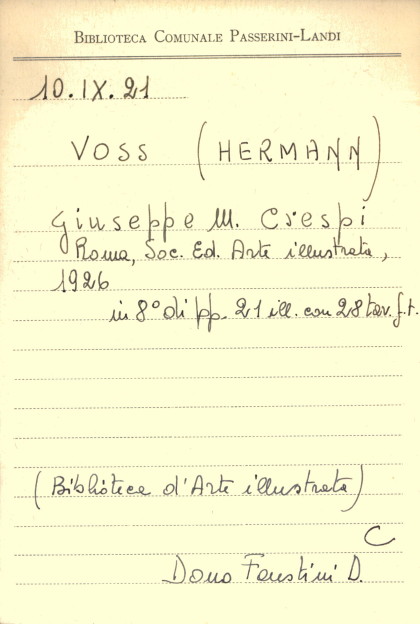 BIBLIOTECA COMUNALE PASSERINI-LANDI
10.IX.21
VOSS (HERMANN)
Giuseppe M. Crespi
Roma, Soc. Ed. Arte illustrata,
1926
in 8° di pp. 21 ill. con 28 tav. f.t.
(Biblioteca d'Arte illustrata)
C
Dono Faustini D.